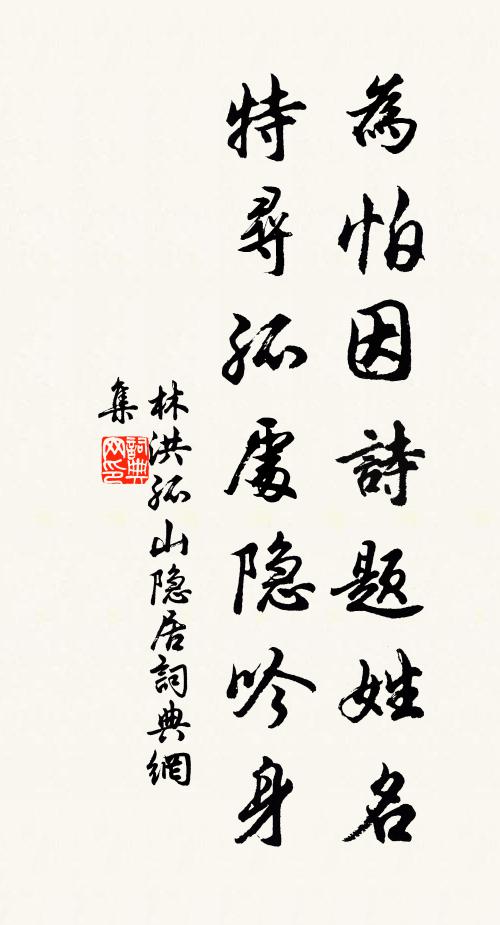 為怕因詩题姓名
特尋孤處隐吟身
林洪孤山隐居詞典網
集
詞典
网印